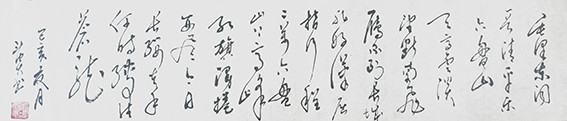 毛泽东词
清平乐
六盘山
天高云淡
望断南飞
雁不到长城
非好汉屈
指行程
二万六盘
山上高峰
红旗漫捲
西风今日
长缨在手
何时缚住
苍龙
己亥夏月